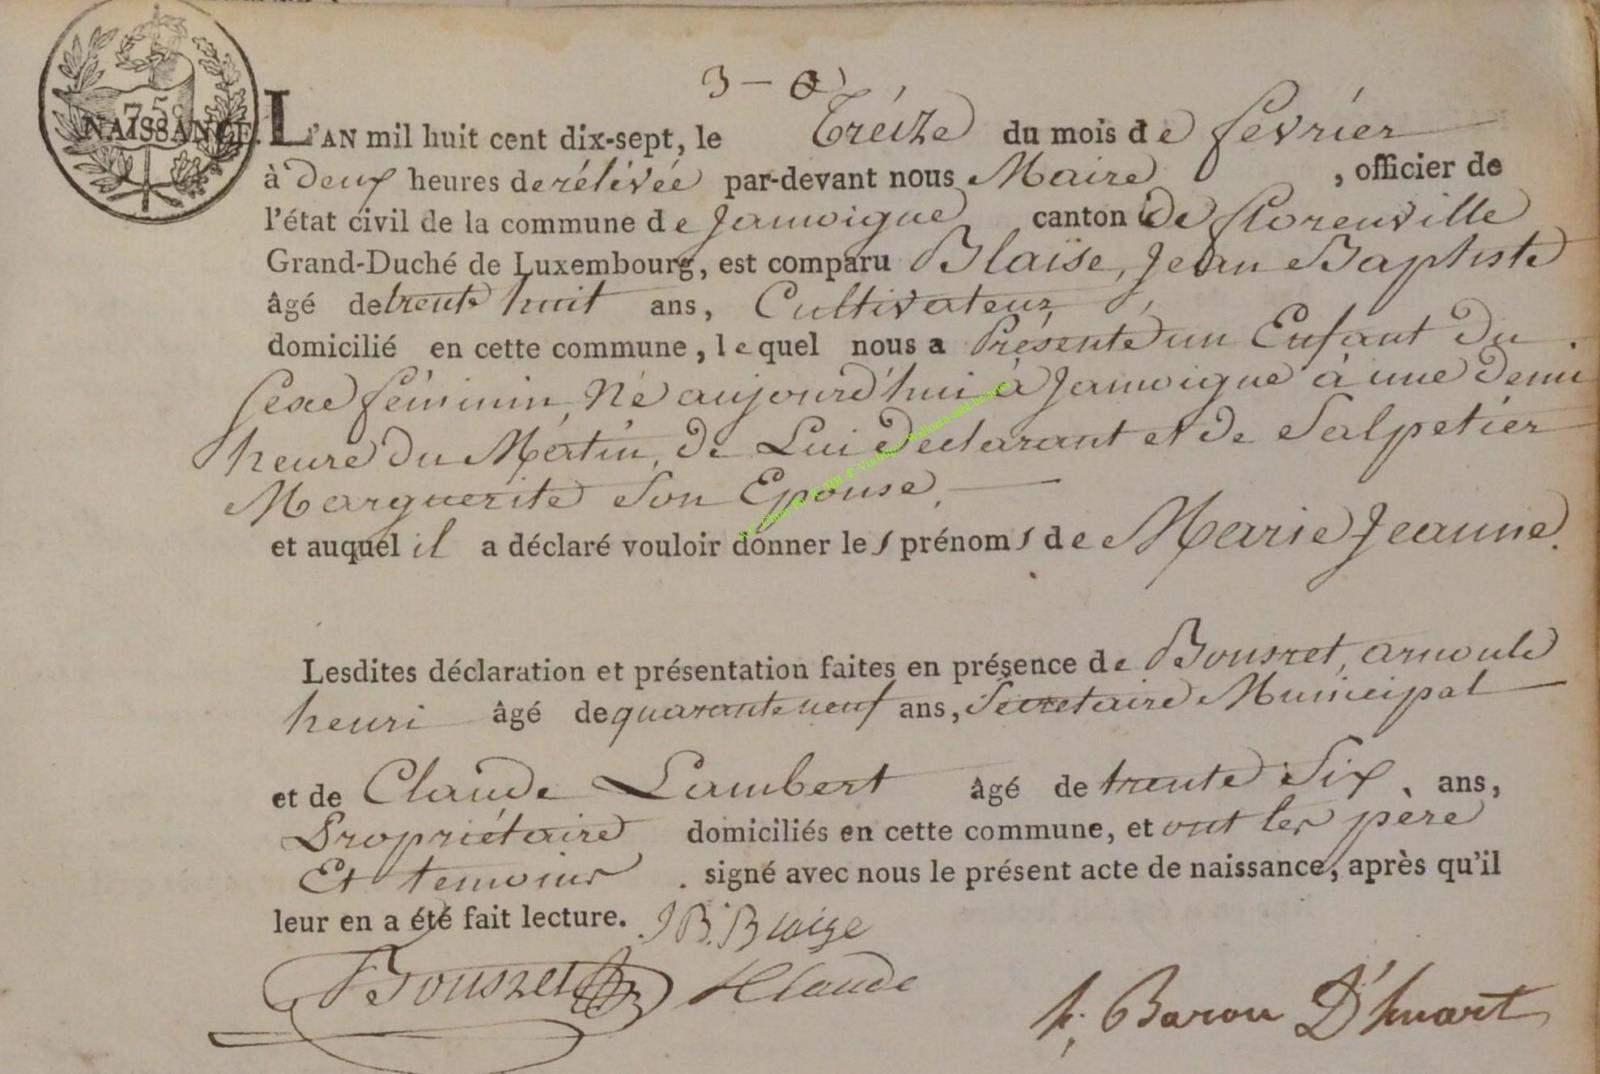 3 -
75
NAISSANCE.
L'AN mil huit cent dix-sept, le Tréize du mois de fevrier
à deux heures de rélévée par-devant nous Maire, officier de
l'état civil de la commune de Jamoigne canton de florenville
Grand-Duché de Luxembourg, est comparu Blaise, Jean Baptiste
âgé de trente huit ans, Cultivateur,
domicilié en cette commune, lequel nous a Présenté un Enfant du
sexe féminin, Né aujourd'hui à Jamoigne à une demi
heure du Matin, de Lui déclarant et de Salpetier
Marguerite Son Epouse,
et auquel il a déclaré vouloir donner les prénoms de Marie Jeanne.
Lesdites déclaration et présentation faites en présence de Bousret, arnould
henri âgé de quarante neuf ans, Secretaire Municipal
et de Claude Lambert âgé de trente Six, ans,
Propriétaire domiciliés en cette commune, et ont les père
Et temoins signé avec nous le présent acte de naissance, après qu'il
leur en a été fait lecture. JB. Blaise
Bousret Claude
Baron D'huart